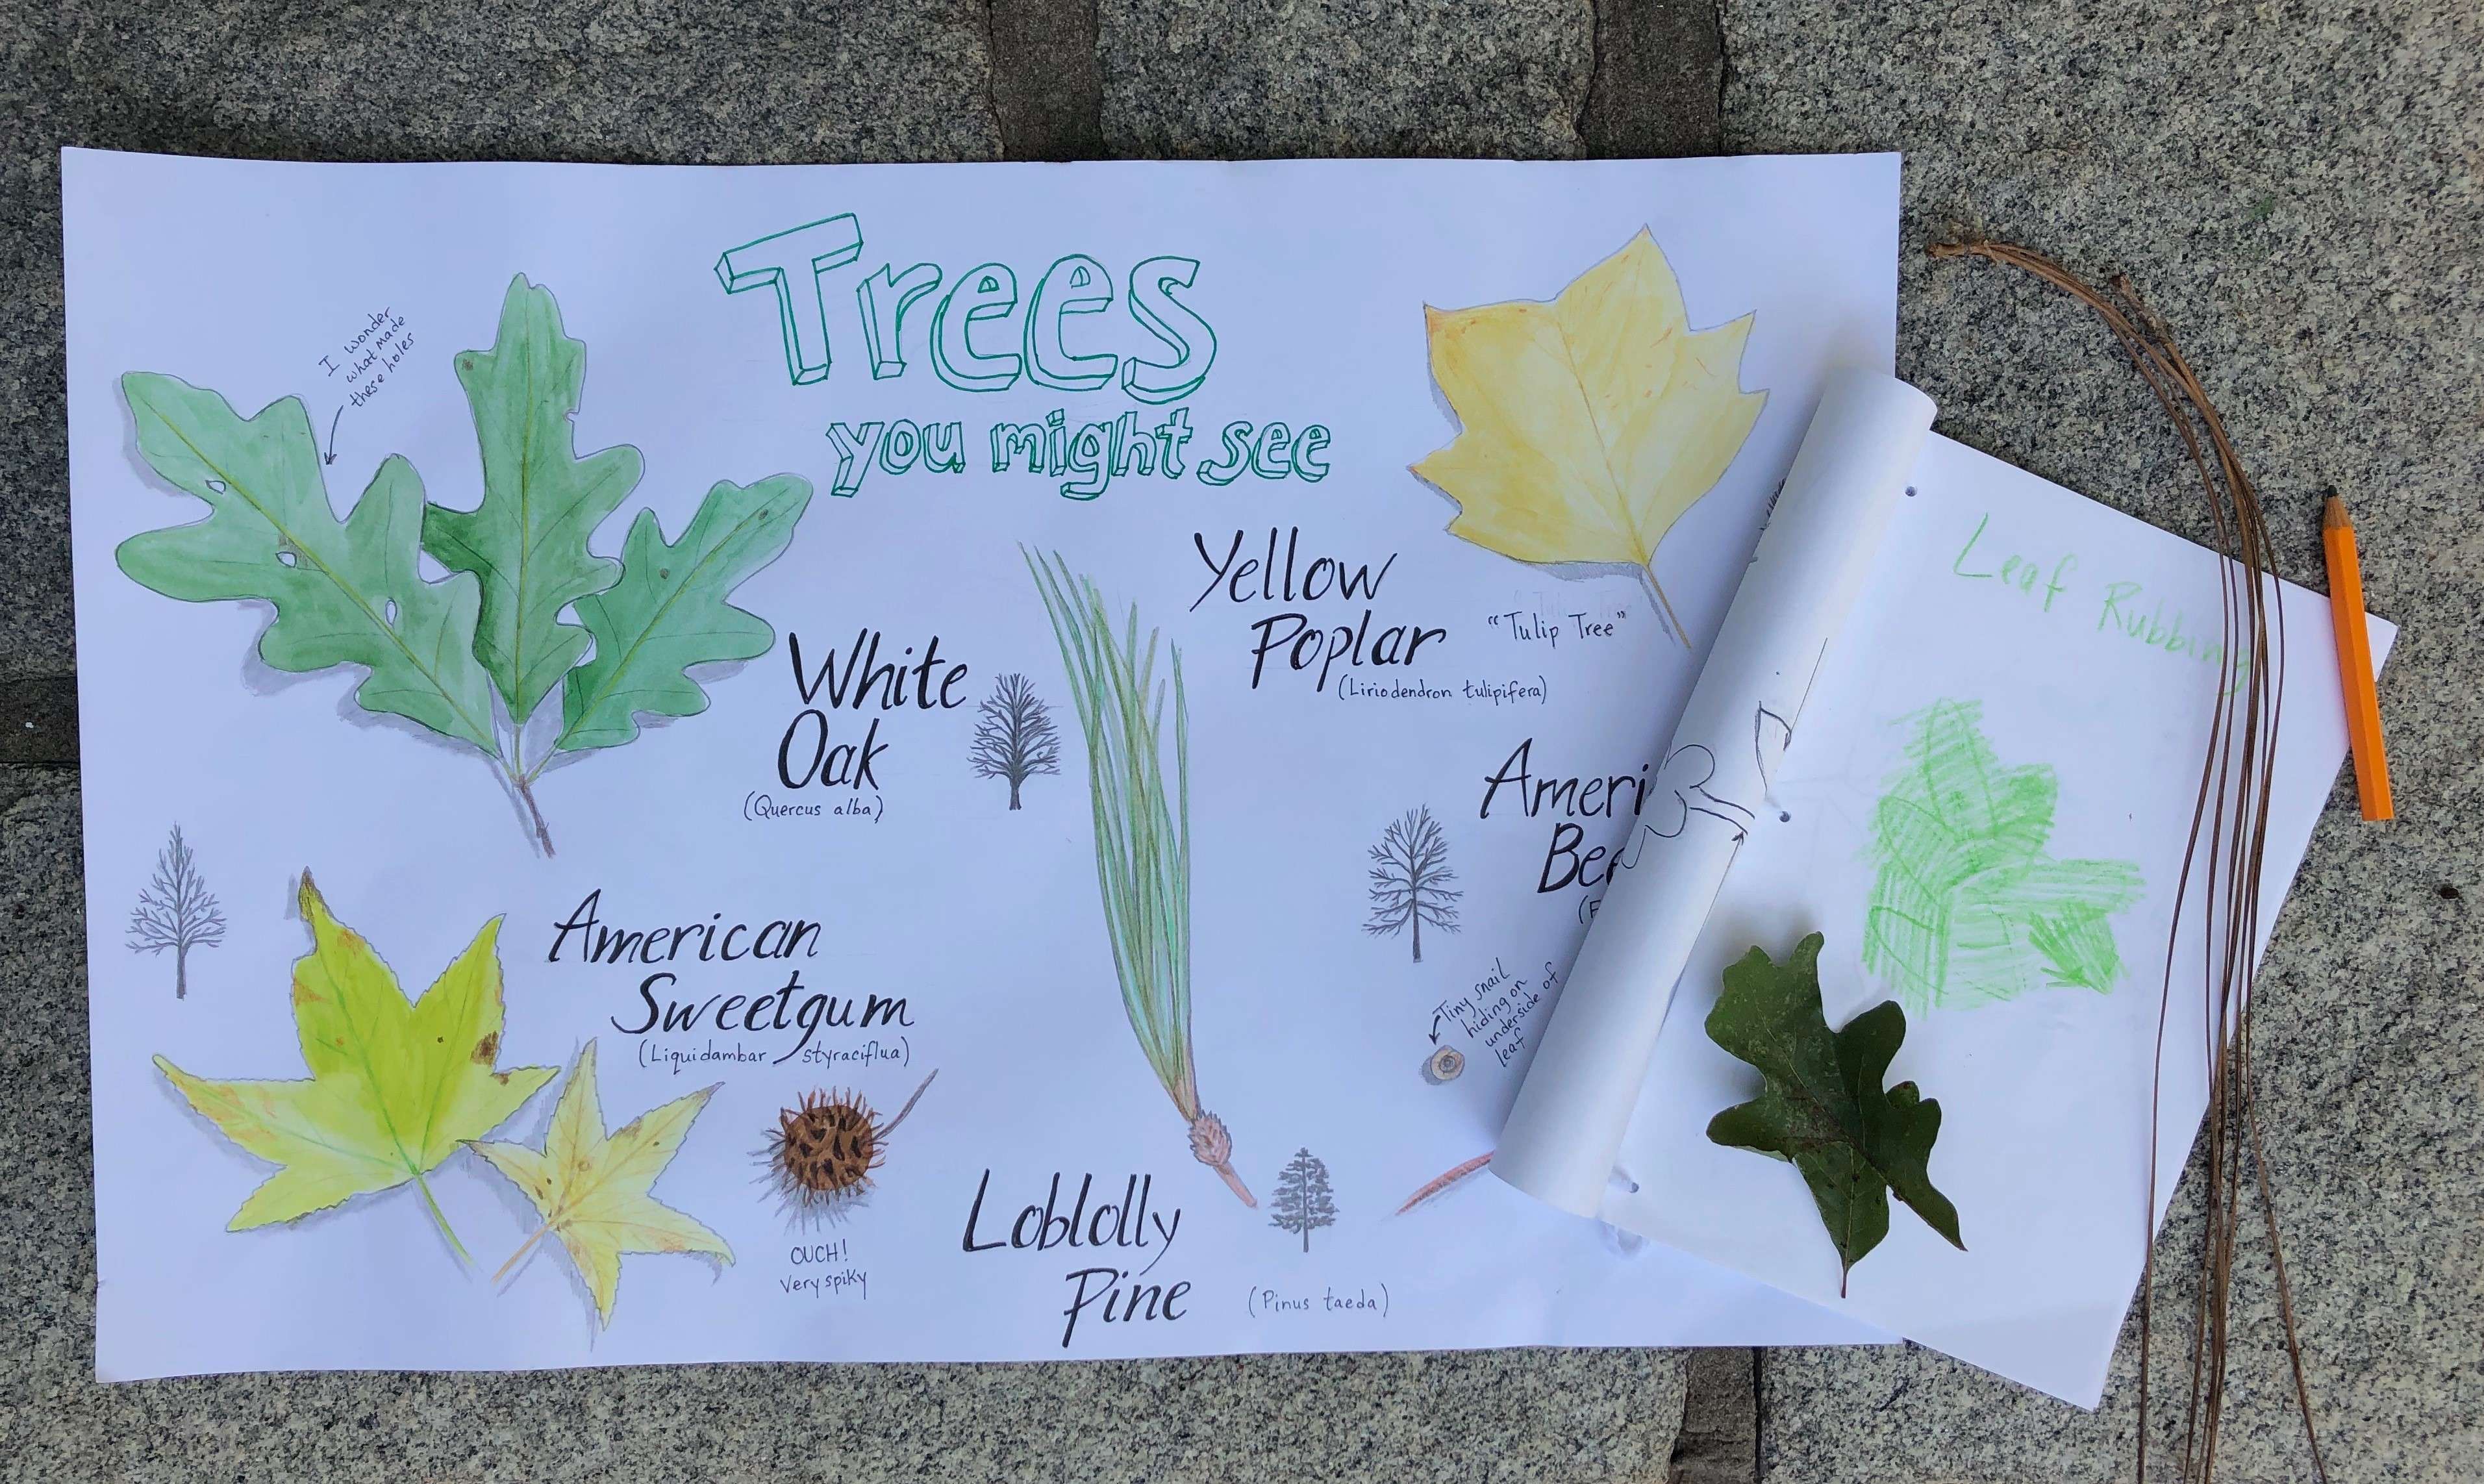 Trees
you might see
I wonder
what made
these holes
White
Oak
(Quercus alba)
Yellow
Poplar
"Tulip Tree"
(Liriodendron tulipifera)
Ameri
Bee
American
Sweetgum
(Liquidambar styraciflua)
OUCH!
Very spiky
Loblolly
Pine
(Pinus taeda)
Tiny snail
hiding on
underside of
leaf
Leaf Rubbing